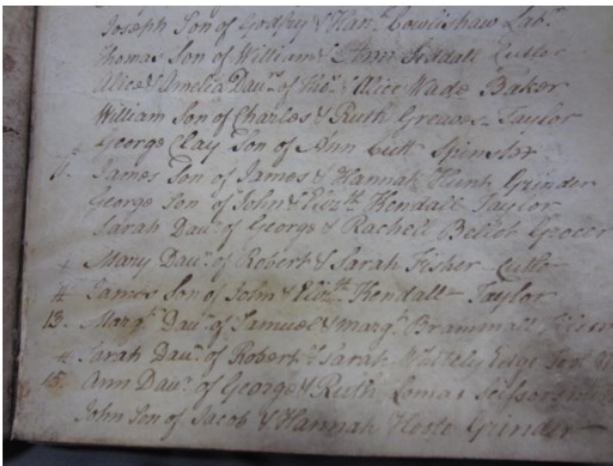 Joseph Son of Godfry & Han.h Cowlishaw Lab.r
Thomas Son of William & Ann Siddall Cutler
Alice & Amelia Dau.rs of Tho.s & Alice Wade Baker
William Son of Charles & Ruth Greaves Taylor
George Clay Son of Ann Cutt Spinster
James Son of James & Hannah Hunt Grinder
George Son of John & Eliz.th Kendall Taylor
Sarah Dau.r of George & Rachell Grocer
Mary Dau.r of Robert & Sarah Fisher
James Son of John & Eliz.th Kendall Taylor
13. Marg.t Dau.r of Samuel & Marg.t Brammall
Sarah Dau.r of Robert & Sarah Edge Tool
15. Ann Dau.r of George & Ruth Lomas
John Son of Jacob & Hannah Grinder